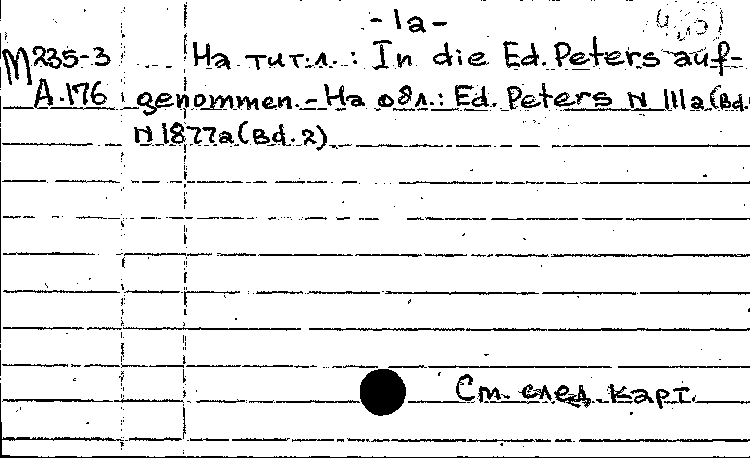 -1а-
М 235-3 На тит.л.: In die Ed. Peters auf-
А.176 genommen. - На обл.: Ed. Peters N 111a (Bd.
N 1877a (Bd. 2)
См. след. карт.